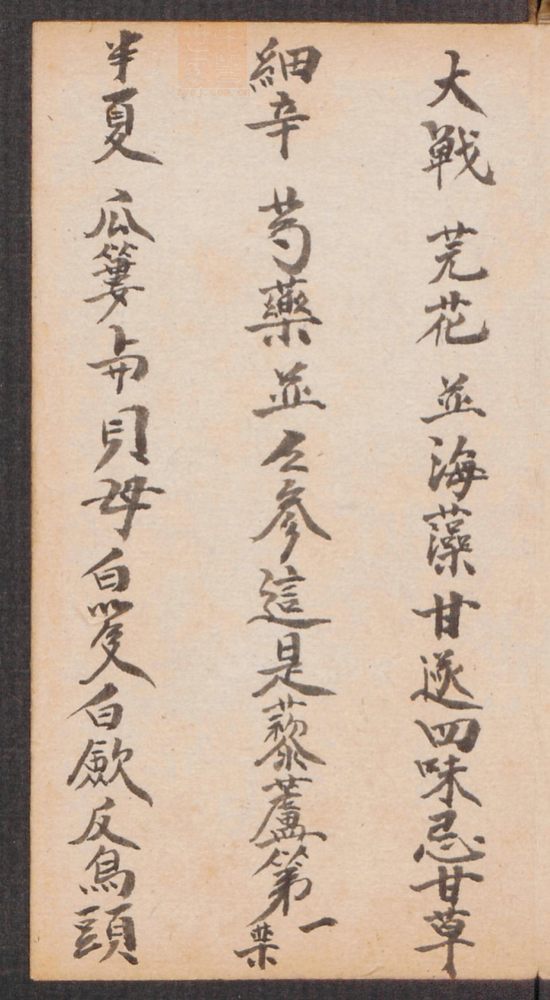 大戟 芫花 並海藻 甘遂四味忌甘草
細辛 芍藥並人參 這是藜蘆第一
半夏 瓜蔞與貝母 白芨白歛反烏頭